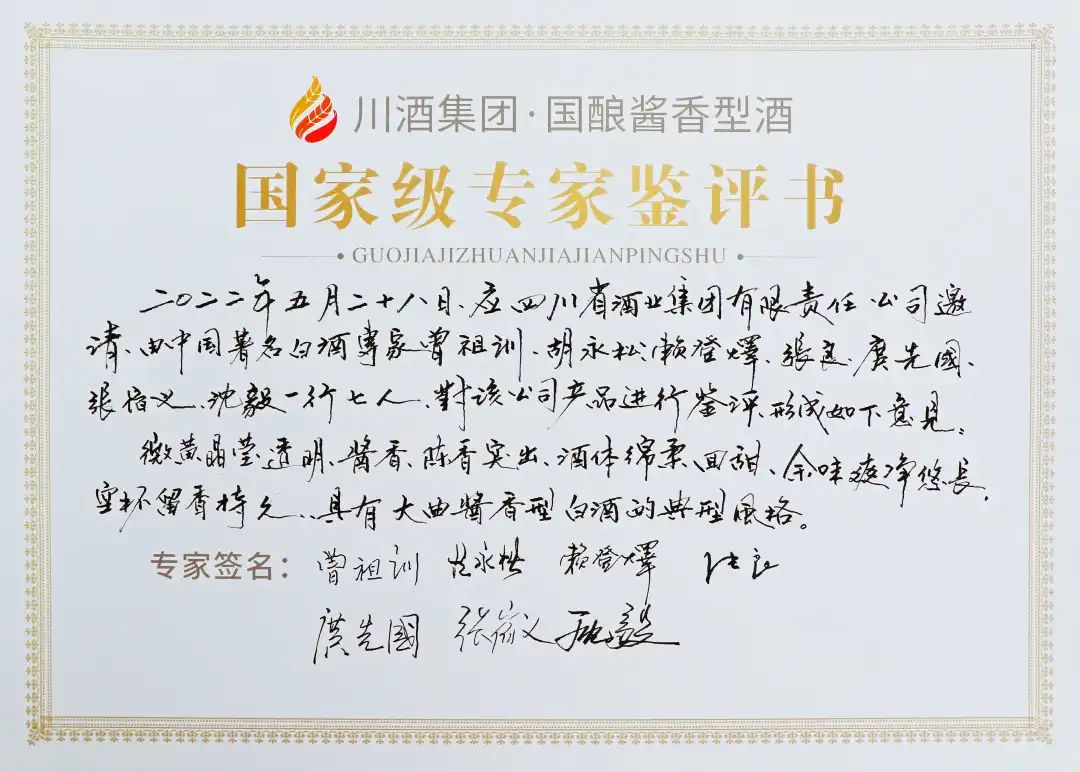 川酒集团·国酿酱香型酒
国家级专家鉴评书
GUOJIAJIZHUANJIAJIANPINGSHU
二〇二二年五月二十八日、应四川省酒业集团有限责任公司邀
请、由中国著名白酒專家曾祖训、胡永松、赖登燡、張良、廣先國、
張宿义、沈毅一行七人、對该公司产品进行鉴评、形成如下意见：
微黄晶莹透明、醬香、陈香突出、酒体绵柔回甜、余味爽净悠长、
空杯留香持久、具有大曲醬香型白酒的典型風格。
专家签名： 曾祖训 胡永松 赖登燡 张良
廣先國 张宿义 沈毅